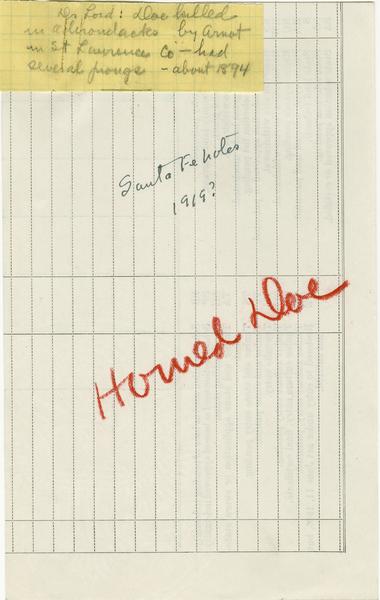 Dr Lord: Doe killed
in Adirondacks by Arnot
in St Lawrence Co – had
several prongs – about 1894
Santa Fe notes
1919?
Horned Doe